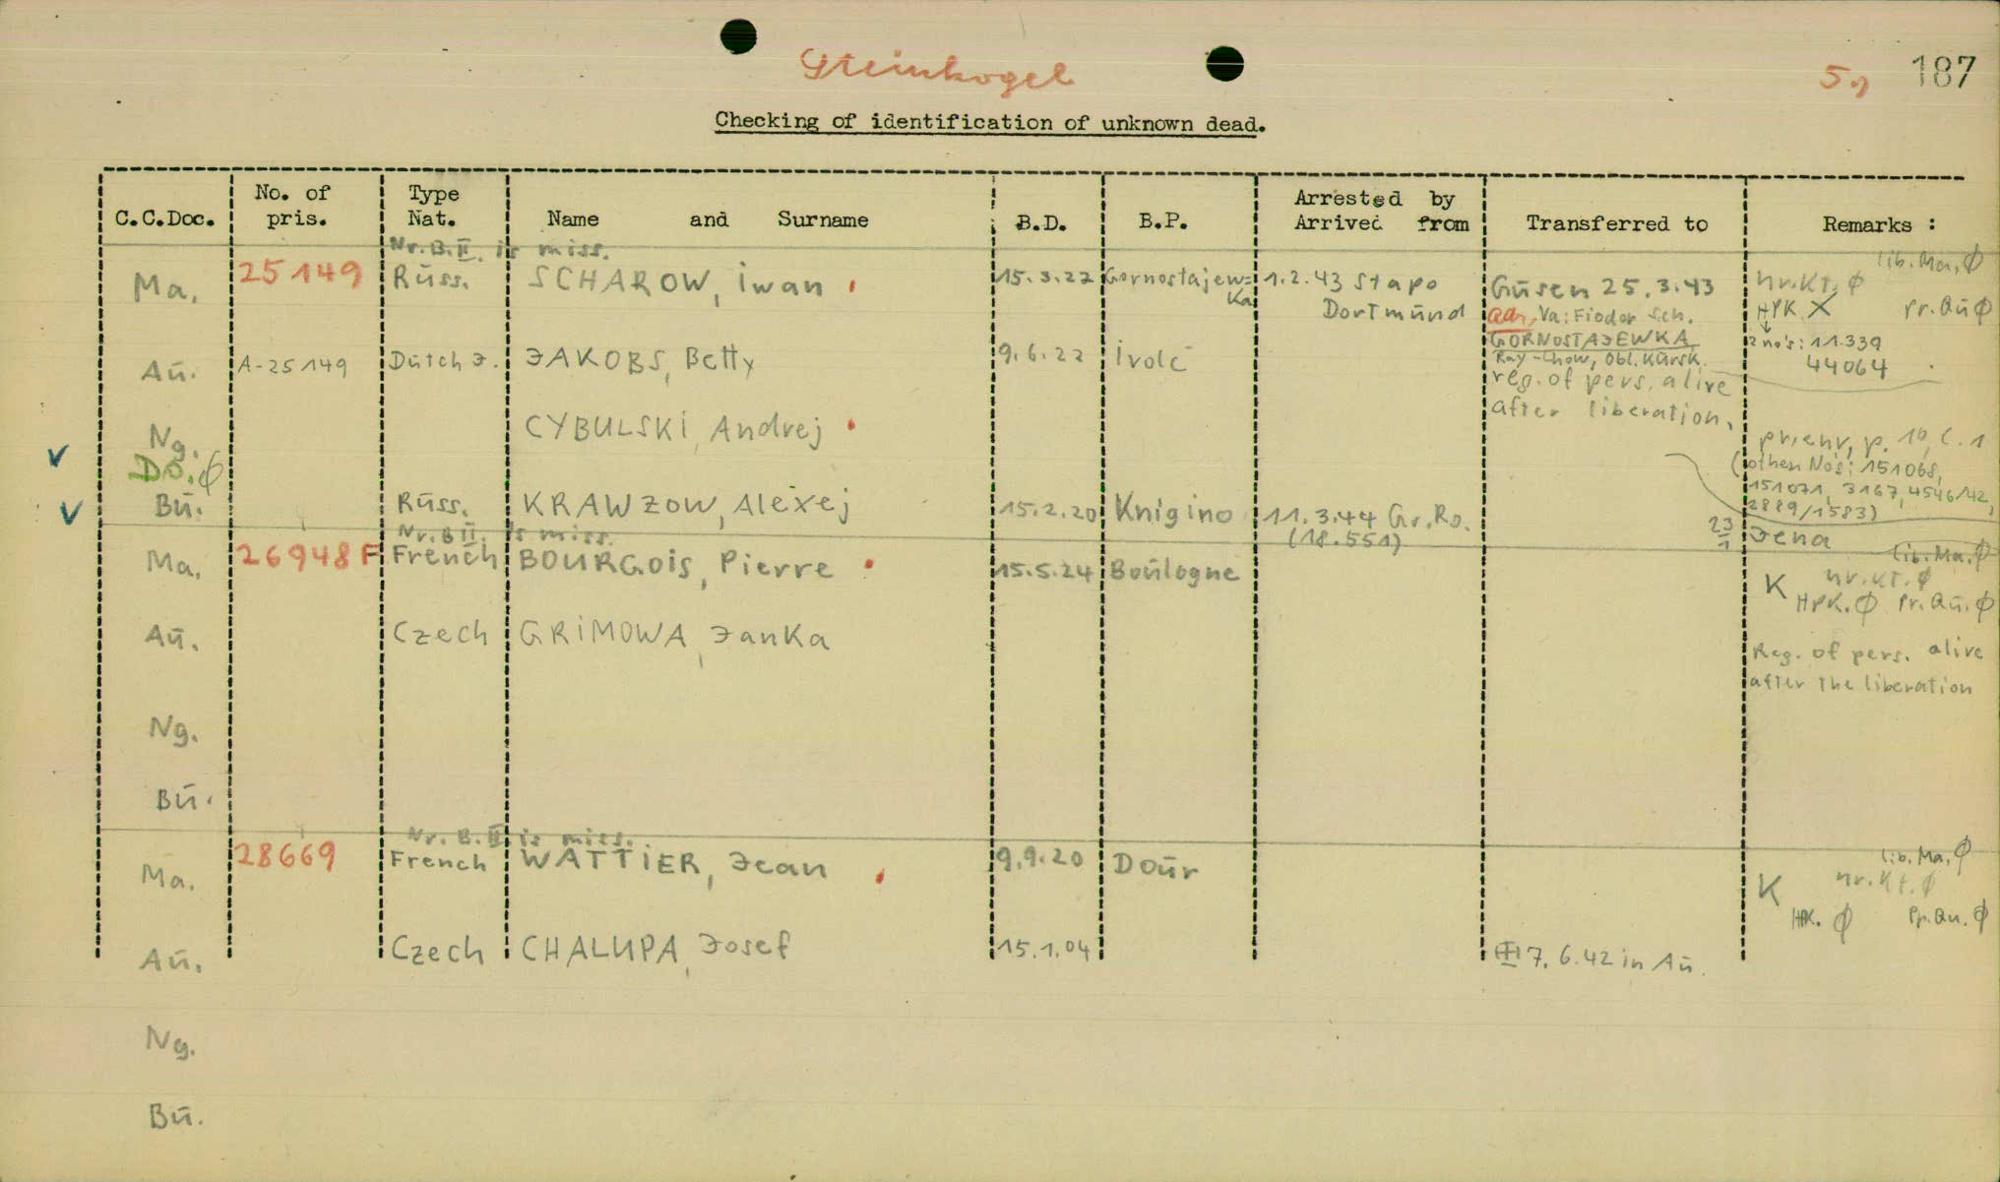 Steinkogel
187
Checking of identification of unknown dead.
C.C.Doc. No. of pris. Type Nat. Name and Surname B.D. B.P. Arrested by Arrived from Transferred to Remarks :
Nr. B. II. is miss. lib. Ma. Ø
Ma. 25149 Rūss. SCHAROW, iwan 15.3.22 Gornostajew= Ka 1.2.43 Stapo Dortmūnd Gūsen 25.3.43 nr.Kt. Ø
adr. Va: Fiodor Sch. HPK. X Pr. Qū Ø
GORNOSTAJEWKA 2 no's: 11.339
Ray-Chow, Obl. Kūrsk. 44064
Aū. A-25149 Dūtch J. JAKOBS, Betty 9.6.22 reg. of pers. alive
after liberation.
Ng. CYBULSKi, Andrej
Do. Ø (other No's: 151068,
151071, 3167, 4546/42,
2889/1583)
Bū. Rūss. KRAWZOW, Alexej 15.2.20 Knigino 11.3.44 Gr. Ro. (18.551) 23/1 Jena
Nr. B II. is miss. lib. Ma. Ø
Ma. 26948 F French BOURGOiS, Pierre 15.5.24 Boūlogne K nr. Kt. Ø
HPK. Ø Pr. Qū. Ø
Aū. Czech GRiMOWA, JanKa Reg. of pers. alive
after the liberation
Ng.
Bū.
Nr. B. II is miss. lib. Ma. Ø
Ma. 28669 French WATTiER, Jean 9.9.20 Doūr K nr. Kt. Ø
HPK. Ø Pr. Qu. Ø
Aū. Czech CHALUPA, Josef 15.1.04 7.6.42 in Aū.
Ng.
Bū.